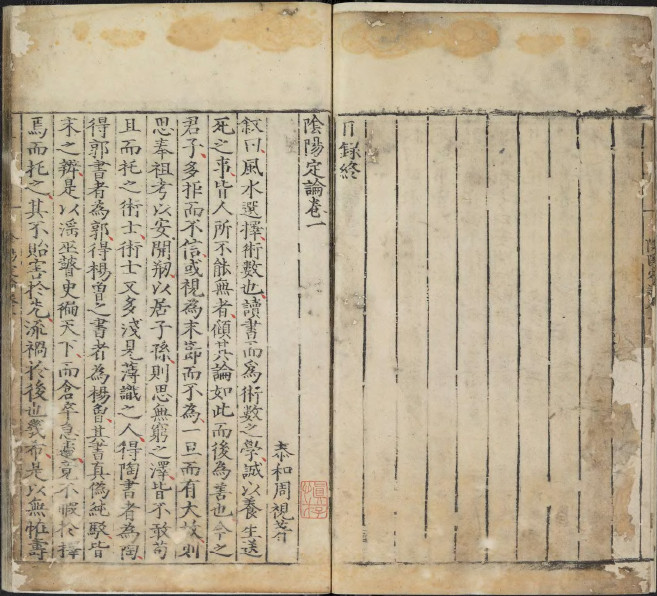 目錄終
陰陽定論卷一
泰和周視
敘曰風水選擇術數也讀書而為術數之學誠以養生送
死之事皆人所不能無者傾其論如此而後為善也今之
君子多拒而不信或視為末節而不為一旦而有大故則
思奉祖考以安開刱以居子孫則思無窮之澤皆不敢苟
且而托之術士術士又多淺見薄識之人得陶書者為陶
得郭書者為郭得楊曾之書者為楊曾其書真偽純駁皆
未之辨是以滛巫瞽史徧天下而倉卒急遽竟不暇於擇
焉而托之其不貽害於先流禍於後也幾希是以無惟